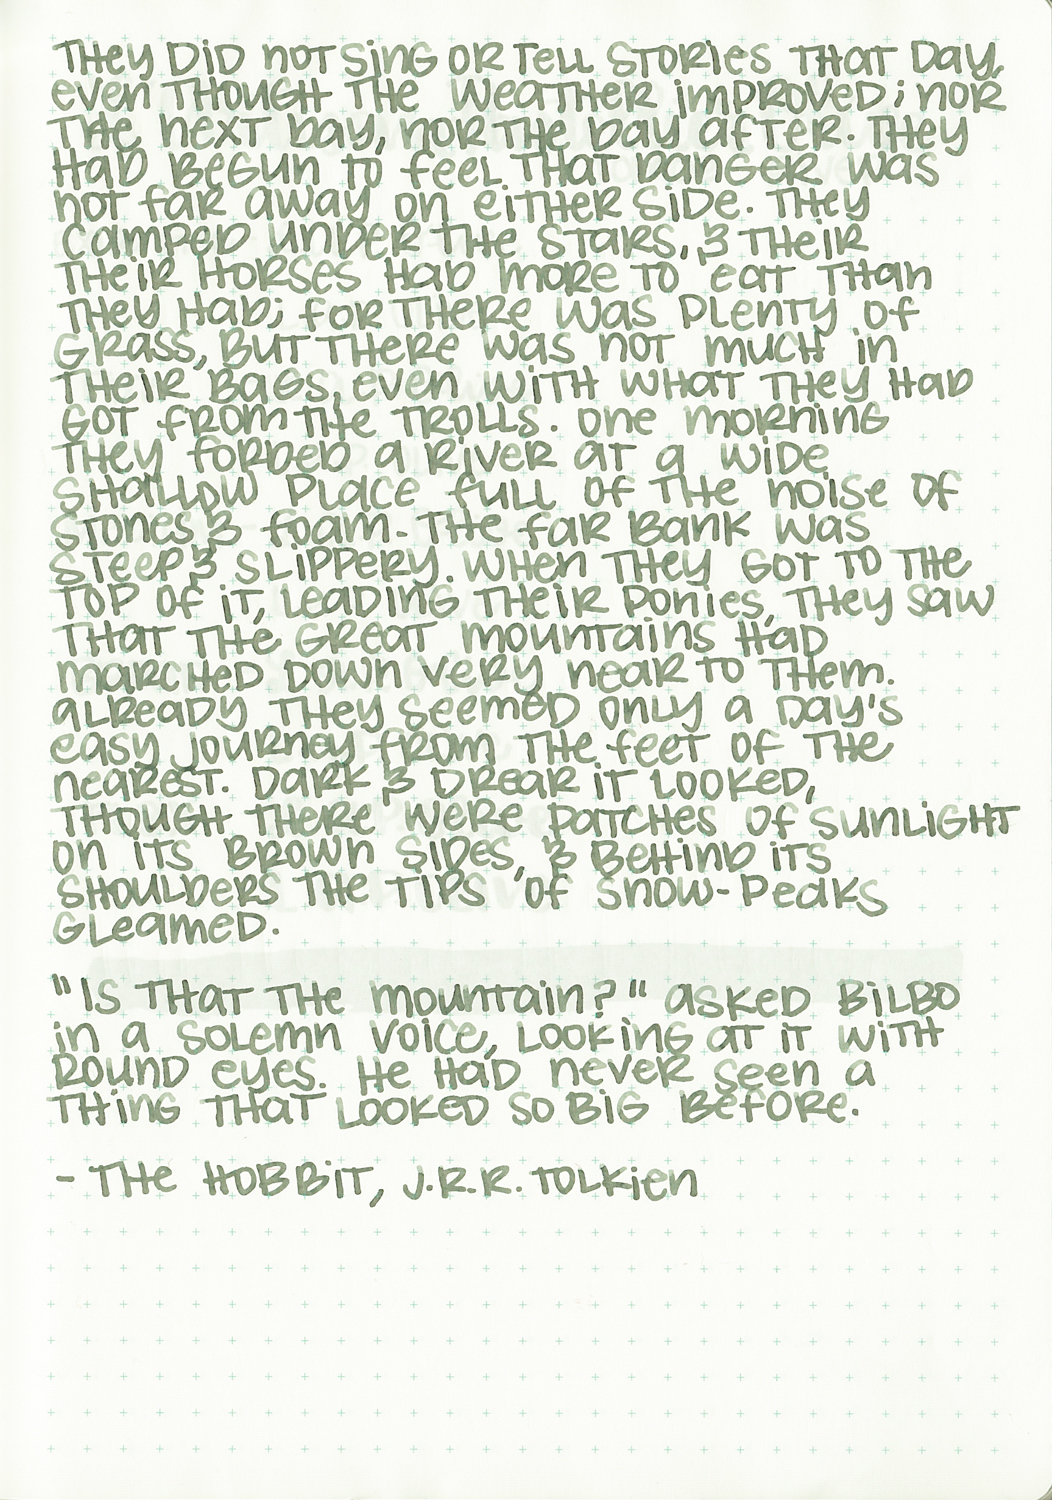 They did not sing or tell stories that day,
even though the weather improved; nor
the next day, nor the day after. They
had begun to feel that danger was
not far away on either side. They
camped under the stars, & their
their horses had more to eat than
they had; for there was plenty of
grass, but there was not much in
their bags, even with what they had
got from the trolls. One morning
they forded a river at a wide
shallow place full of the noise of
stones & foam. The far bank was
steep & slippery. When they got to the
top of it, leading their ponies, they saw
that the great mountains had
marched down very near to them.
Already they seemed only a day's
easy journey from the feet of the
nearest. Dark & drear it looked,
though there were patches of sunlight
on its brown sides, & behind its
shoulders the tips of snow-peaks
gleamed.
"Is that the mountain?" asked Bilbo
in a solemn voice, looking at it with
round eyes. He had never seen a
thing that looked so big before.
- The Hobbit, J.R.R. Tolkien